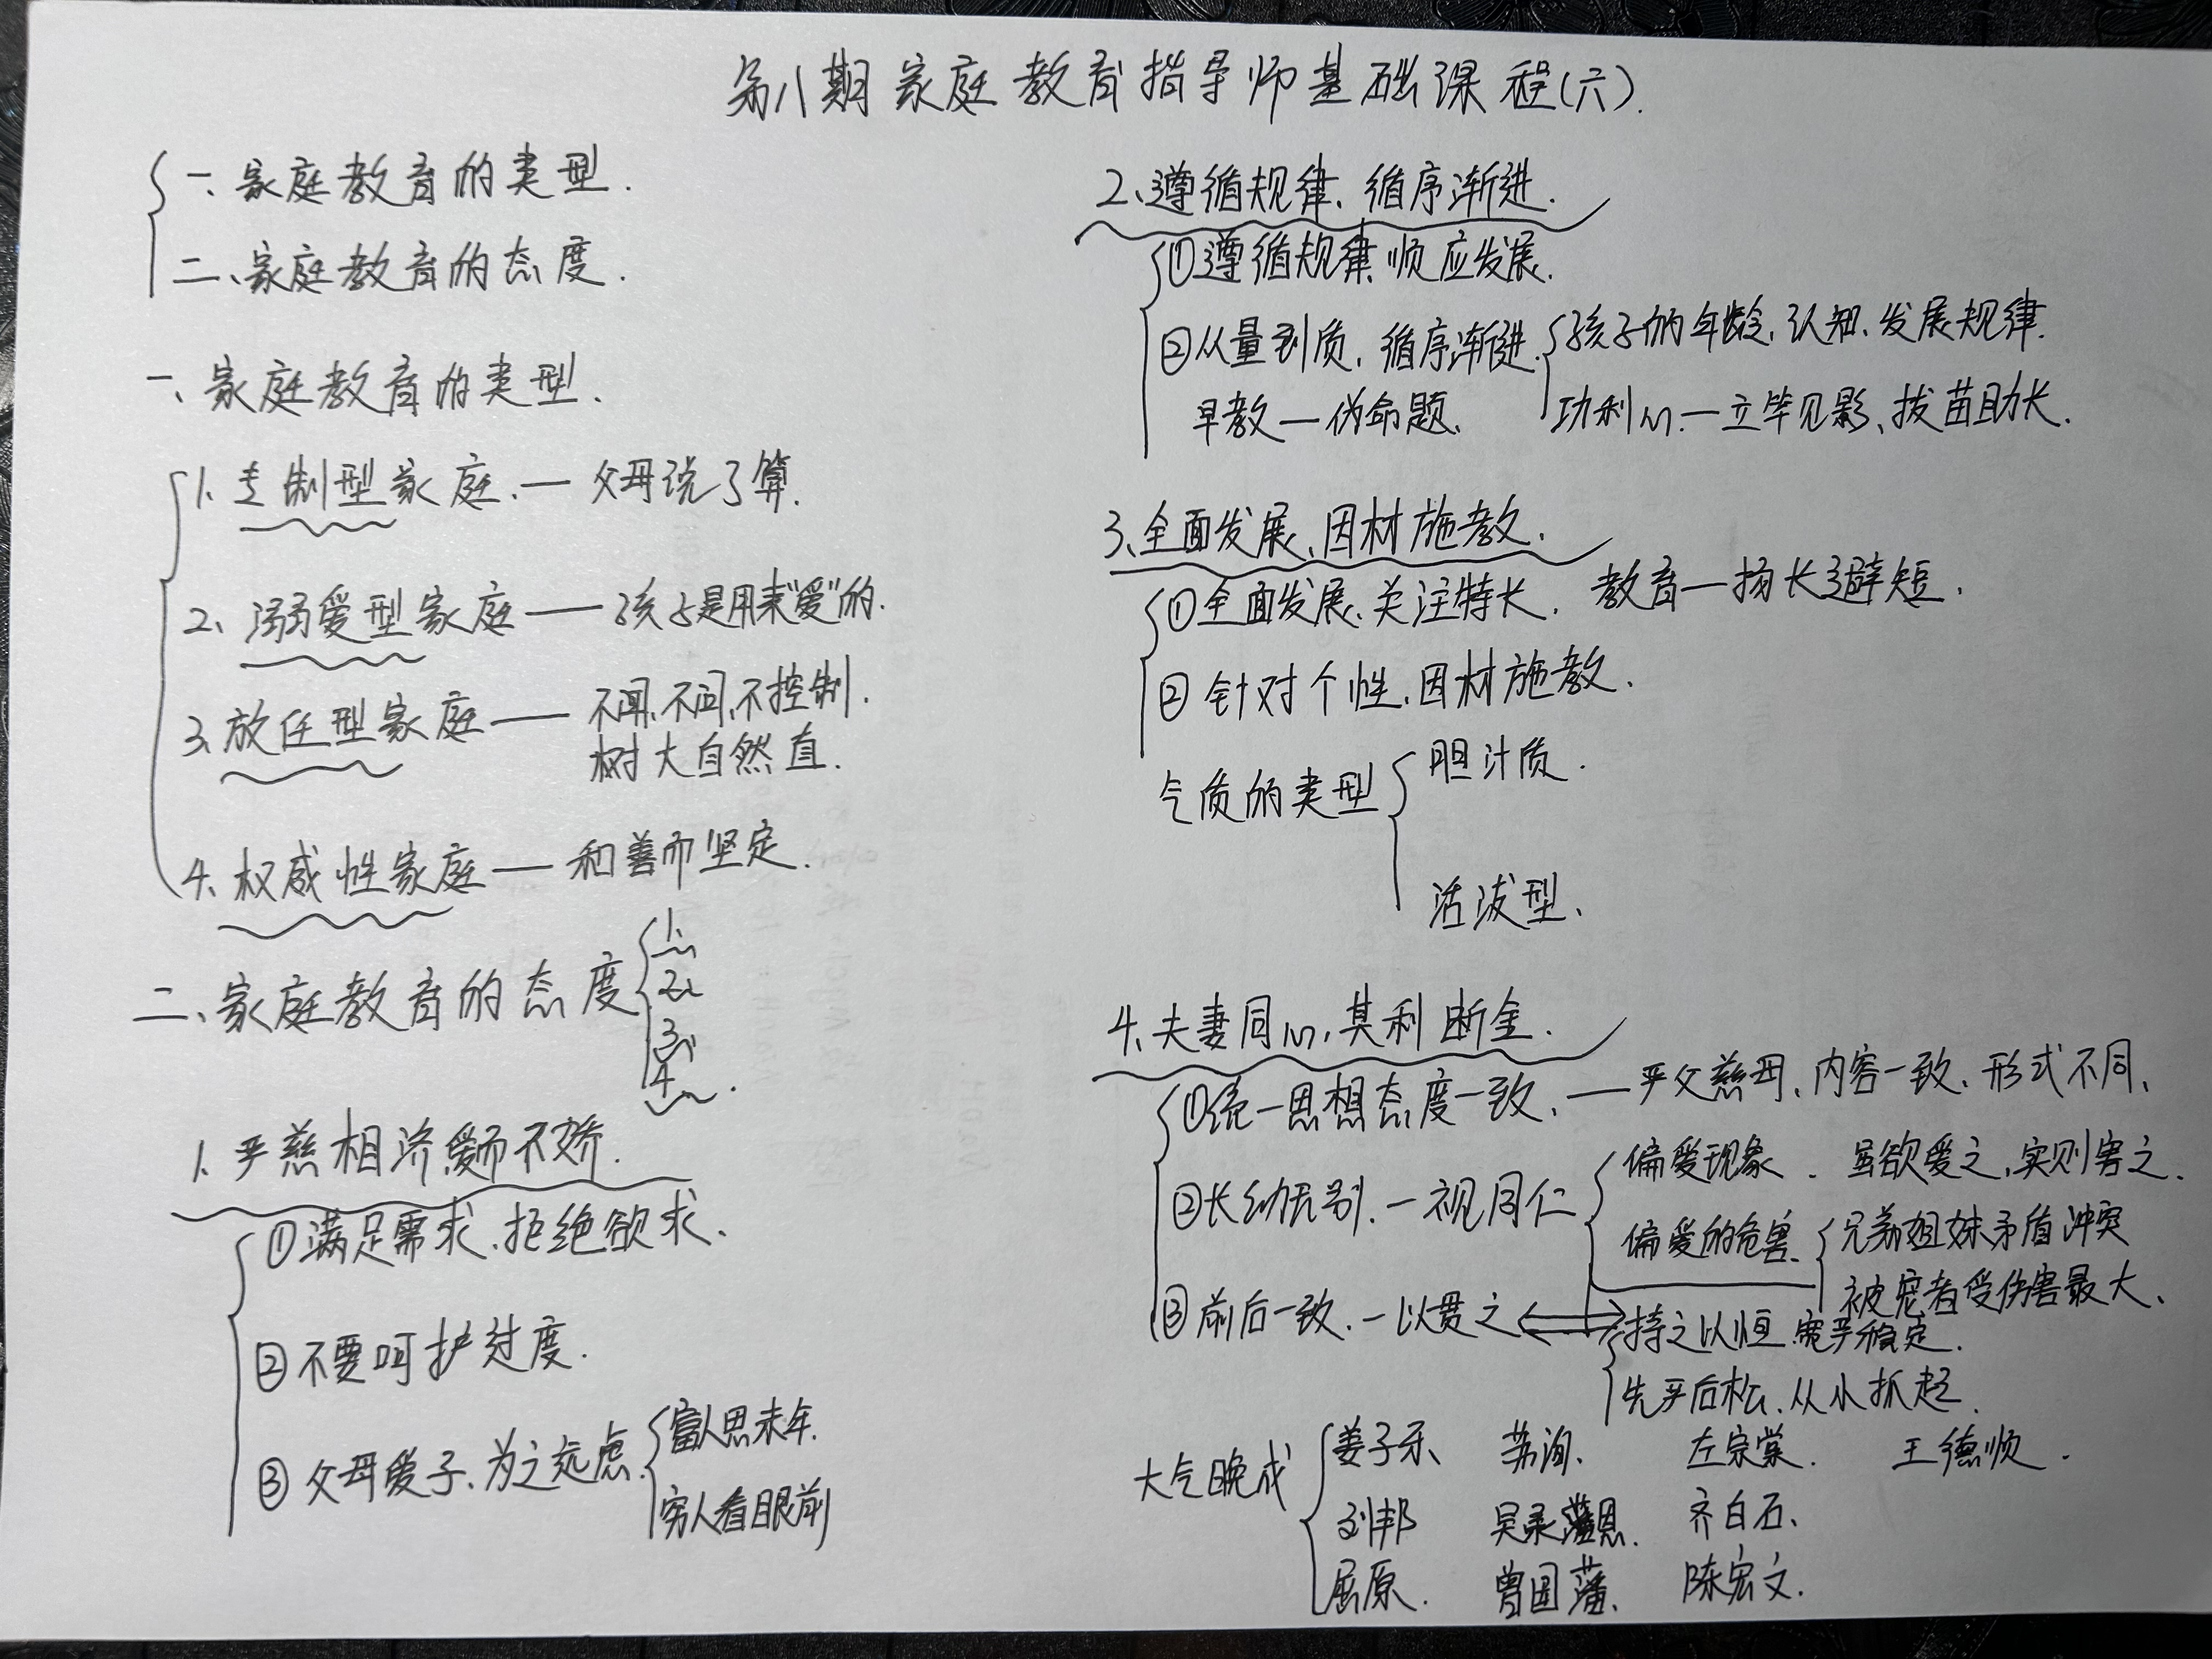 第八期家庭教育指导师基础课程(六).
一、家庭教育的类型.
二、家庭教育的态度.
一、家庭教育的类型.
1、专制型家庭.— 父母说了算.
2、溺爱型家庭——孩子是用来“爱”的.
3、放任型家庭——不闻、不问、不控制.
树大自然直.
4、权威性家庭——和善而坚定.
二、家庭教育的态度
1、
2、
3、
4、
1、严慈相济爱而不娇.
①满足需求、拒绝欲求、
②不要呵护过度.
③父母爱子、为之远虑.
富人思未年.
穷人看眼前
2、遵循规律、循序渐进.
①遵循规律、顺应发展.
②从量到质、循序渐进.
孩子的年龄、认知、发展规律.
早教—伪命题.
功利心—立竿见影、拔苗助长.
3、全面发展、因材施教.
①全面发展、关注特长. 教育—扬长避短.
②针对个性、因材施教.
气质的类型
胆汁质.
活泼型、
4、夫妻同心,其利断金.
①统一思想态度一致、——严父慈母、内容一致、形式不同、
②长幼无别、一视同仁
偏爱现象. 虽欲爱之,实则害之.
偏爱的危害、
兄弟姐妹矛盾冲突
被宠者受伤害最大、
③前后一致、一以贯之
持之以恒 宽严稳定.
先严后松、从小抓起.
大气晚成
姜子牙、 苏洵、 左宗棠. 王德顺.
刘邦 吴承恩. 齐白石、
屈原. 曾国藩、 陈宏文.